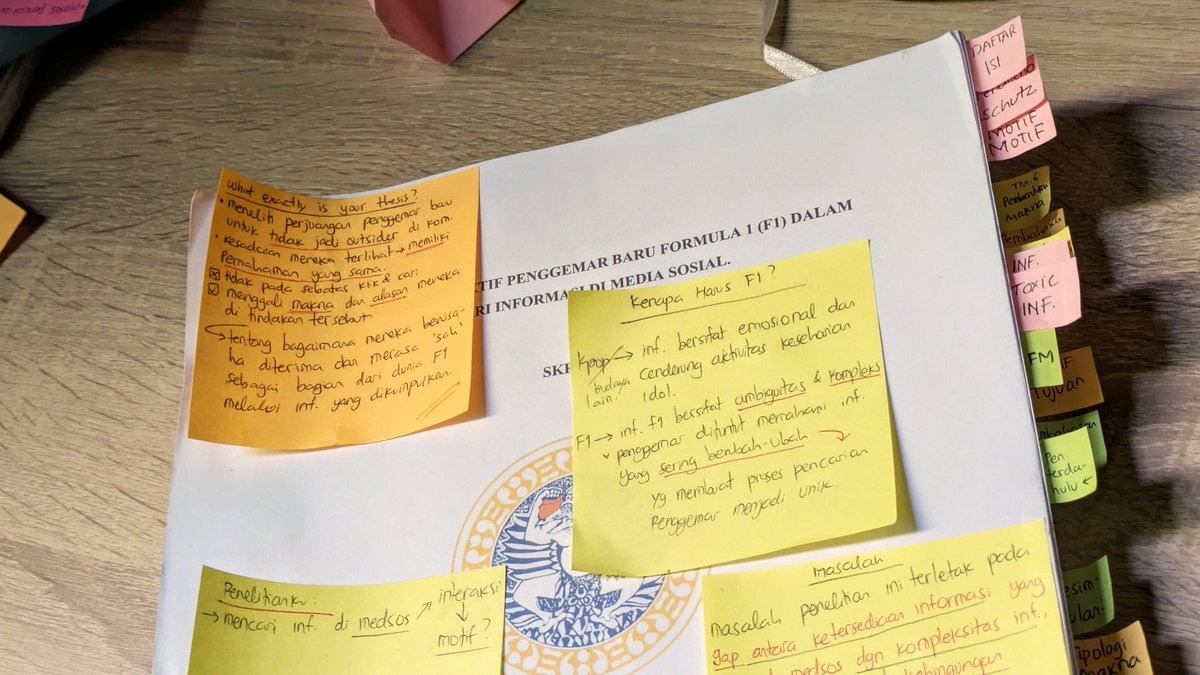 What exactly is your thesis?
• meneliti perjuangan penggemar baru
untuk tidak jadi outsider di kom.
• kesadaran mereka terlihat → memiliki
Pemahaman yang sama.
tidak pada sebatas klik & cari
menggali makna dan alasan mereka
di tindakan tersebut
tentang bagaimana mereka berusa-
ha diterima dan merasa 'sah'
sebagai bagian dari dunia F1
melalui inf. yang dikumpulkan.
TIF PENGGEMAR BARU FORMULA 1 (F1) DALAM
RI INFORMASI DI MEDIA SOSIAL.
SKR
Kenapa Harus F1?
Kpop → inf. bersifat emosional dan
budaya cenderung aktivitas keseharian
lain. idol.
F1 → inf. F1 bersifat ambiguitas & kompleks
penggemar dituntut memahami inf.
yang sering berubah-ubah
yg membuat proses pencarian
Penggemar menjadi unik.
Penelitianku:
→ mencari inf. di medsos → interaksi
↓
motif?
Masalah.
masalah penelitian ini terletak pada
gap antara ketersediaan informasi yang
medsos dgn kompleksitas inf.,
kebingungan
DAFTAR
ISI
Schutz
MOTIF
MOTIF
Makna
INF.
TOXIC
INF.
FM
Tujuan
Pen.
terda-
hulu ←
esim-
ulan-
Tipologi
makna